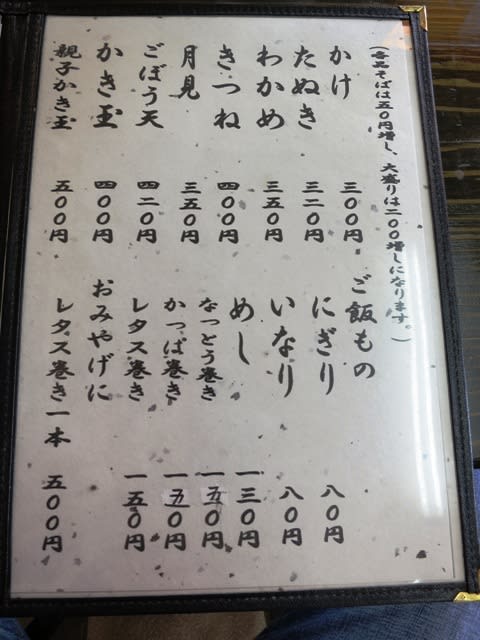 （そばは五〇円増し、大盛りは二〇〇増しになります。）
かけ 三〇〇円
たぬき 三二〇円
わかめ 三五〇円
きつね 四〇〇円
月見 三五〇円
ごぼう天 四二〇円
かき玉 四〇〇円
親子かき玉 五〇〇円
ご飯もの
にぎり 八〇円
いなり 八〇円
めし 一三〇円
なっとう巻き 一五〇円
かっぱ巻き 一五〇円
レタス巻き 一五〇円
おみやげに
レタス巻き一本 五〇〇円